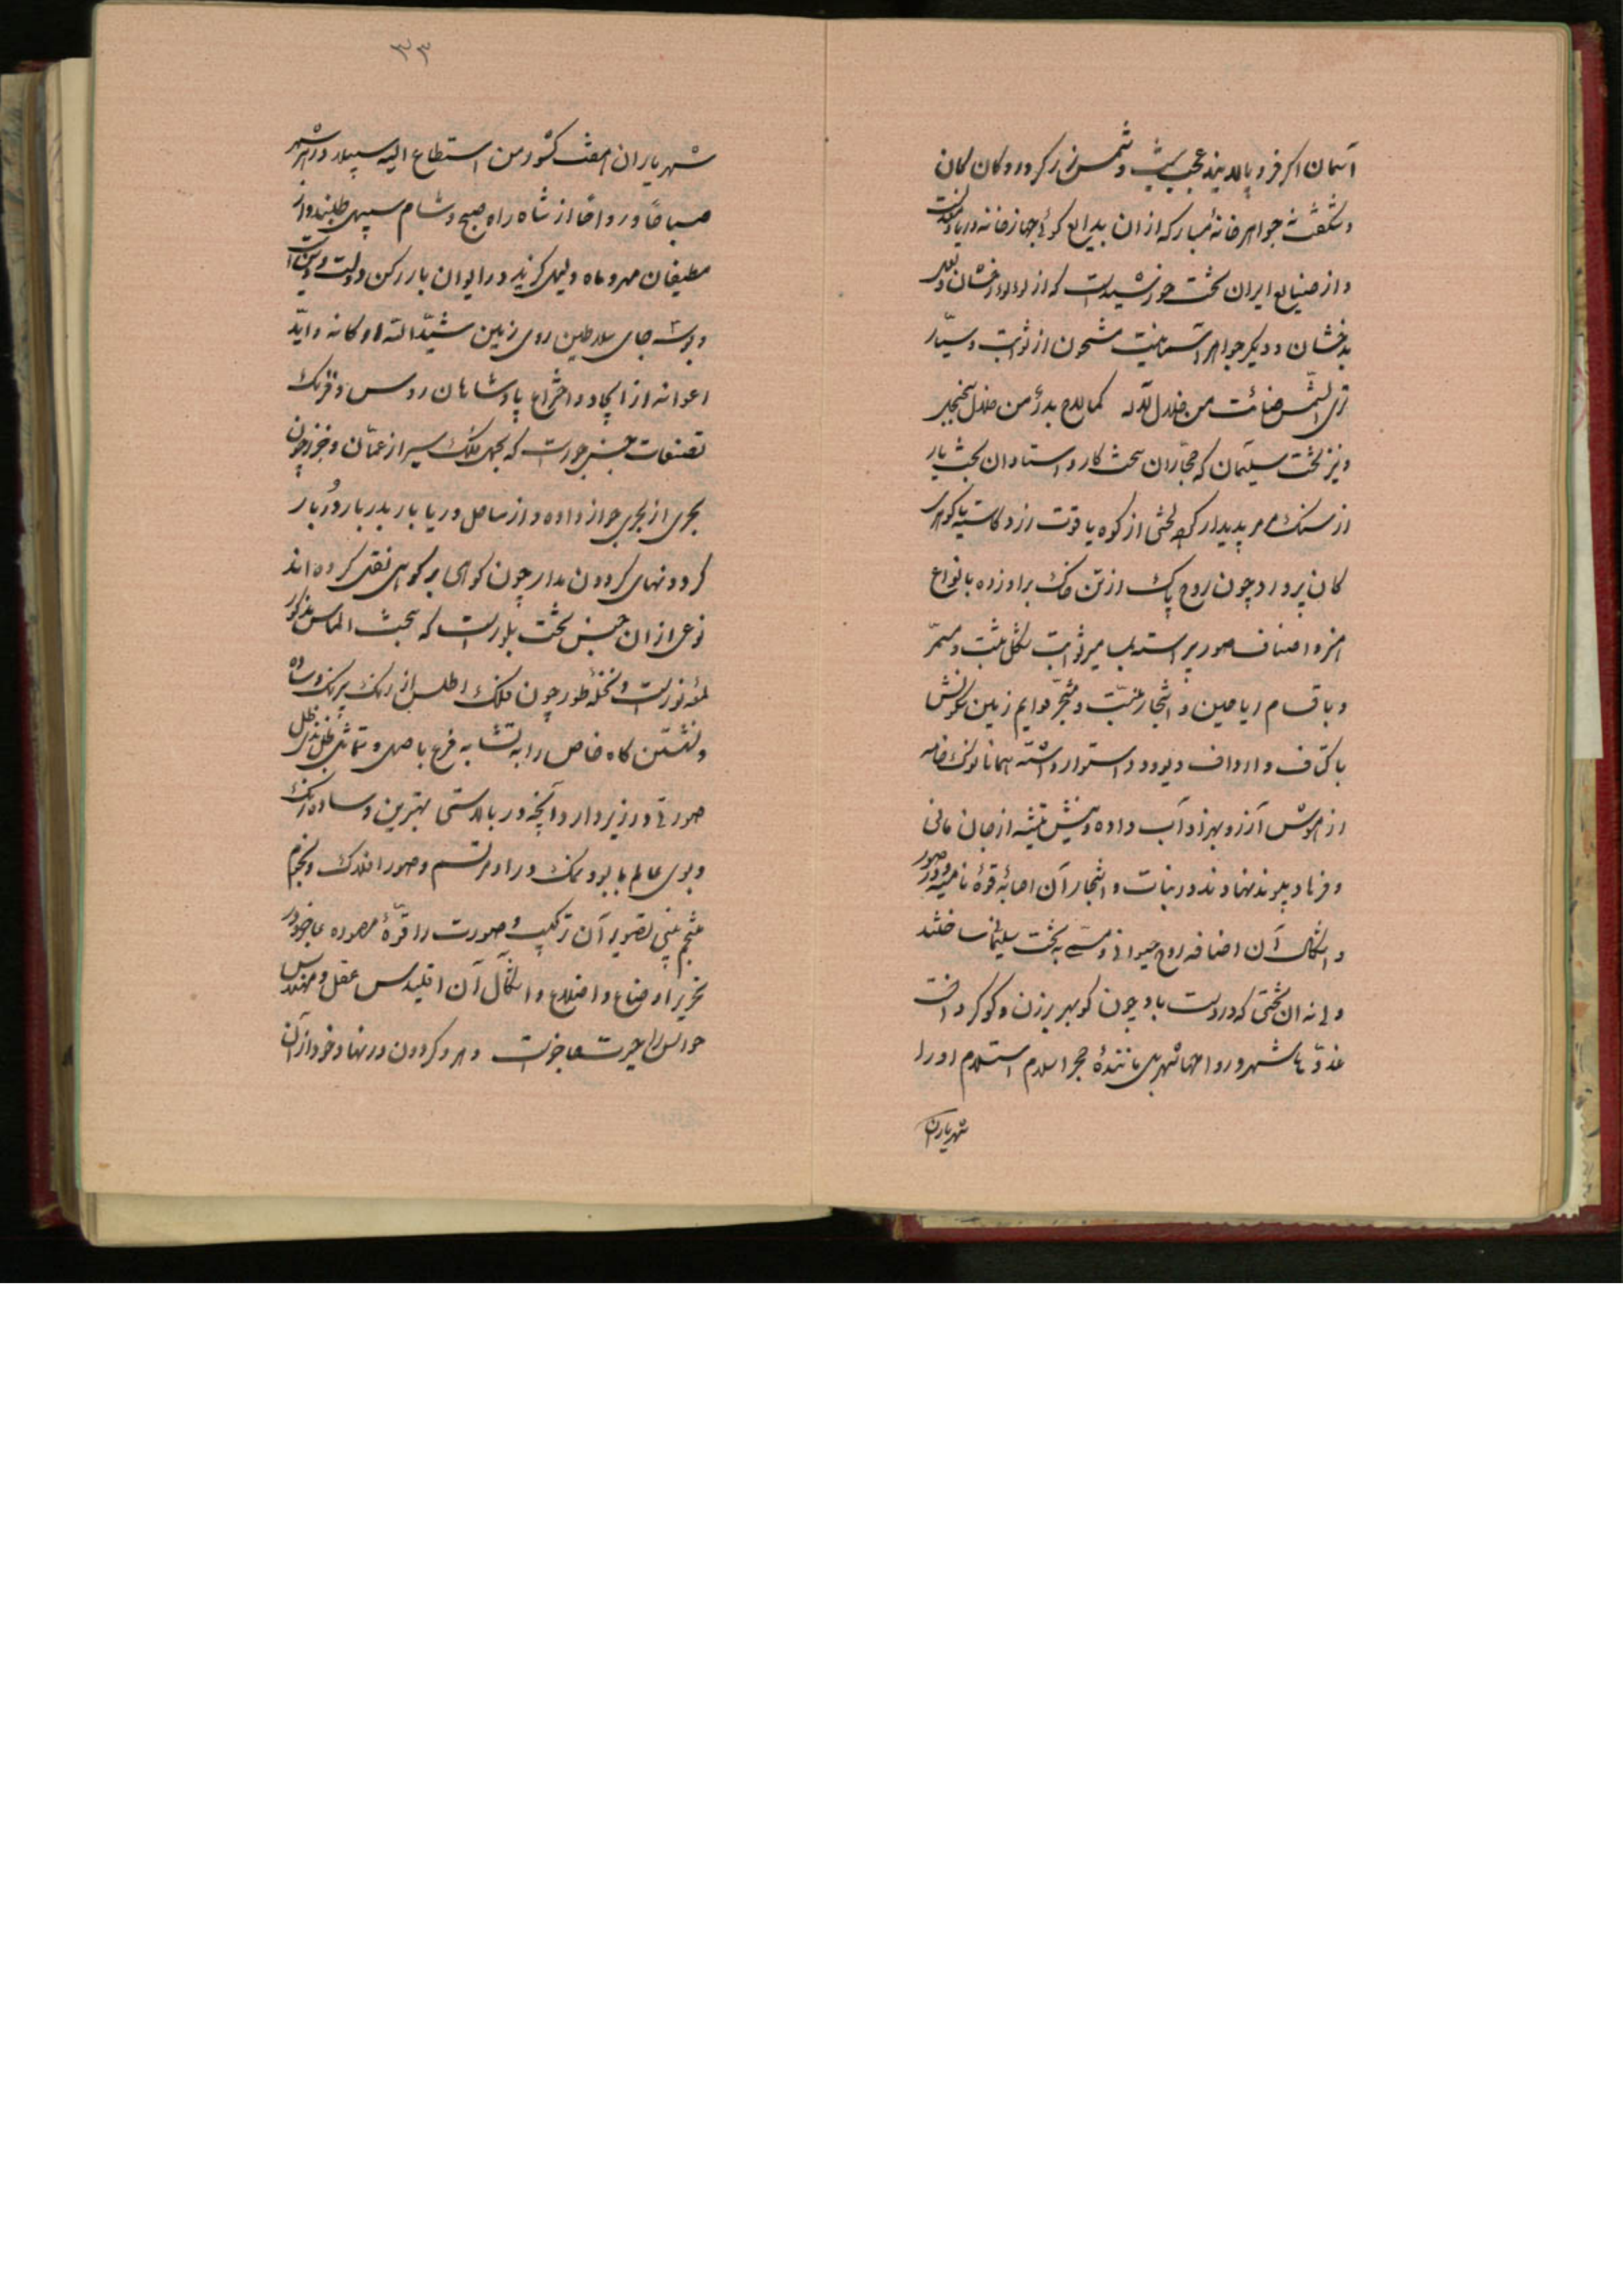 آسمان اگر فرو بالا بیند عجب نیست و شمس زرگر در دکان کان
و شگفت جواهر خانهٔ مبارکه از ان بدایع گوئی جهاز خانه دریا و
و از صنایع ایران تخت خورشیدست که از لولو درخشان و لعل
بدخشان و دیگر جواهر آسمانیست مشحون از ثوابت و سیّار
تری الشمس ضائت من خلال لآله کمالاح بدرٌ من خلال
و نیز تخت سلیمان که حجّاران سخت کار و استادان بخت یار
از سنک مرمر پدیدار کرده لختی از کوه یاقوت زرد کاسته یا گوهر
کان پرورد چون روح پاک از تن خاک براورده بانواع
و اصناف صور بر
و باقسام ریاحین و اشجار منبّت و مشجّر قوایم زمین
باکتاف و ارداف دیو و دد استوار داشته همانا نوک خامه
از هوش آزر و بهزاد آب داده و نیش تیشه از جان مانی
و فرهاد پیوند نهادند در نبات و اشجار آن قوهٔ نامیه و در صور
و اشکال آن اضافه روح حیوانی و مسمی به تخت سلیمان ساختند
ولی نه ان تختی که در دست باد چون گو بهر برزن و کو گردانست
غدوّها شهر و رواحها شهر بل مانندهٔ حجر اسلام استلام او را
شهریاران
۳۳
شهریاران هفت کشور من استطاع الیه سبیلا در هر شهر
صباحًا و رواحًا از شاه راه صبح و شام سپهی طلبند و از
مطیفان مهر و ماه دلیل گزیند در ایوان بار رکن دولت و دین است
و بوسه جای سلاطین روی زمین شیّد الله ارکانه و ایّد
اعوانه از ایجاد و اختراع پادشاهان روس و فرنک
تصنعات چینی جورست که بجمل فلک سیر از عمّان و خزر چون
بحری از بحری جواز داده و از ساحل دریا بار بدربار دُربار
گردونهای گردون مدار چون کوهی بر کوهی نقل کرده اند
نوعی از ان جنس تخت بلورست که بخت الماس مذکور
لمؤنورست و نخلهٔ طور چون فلک اطلس از رنک بیرنک و ساده
و نشستن کاه خاص را به تشابه فرع با اصل و تماثل ظل بذی ظل
صورتی در زیر دارد آنچه در بالاستی بهترین و ساده رنک
و بوی عالم بابود نمک در او مرتسم و صور افلاک و نجوم
تصویر آن ترکیب و صورت را قوّهٔ مصوره عاجز و در
تحریر اوضاع و اضلاع و اشکال آن اقلیدس عقل و مهندس
حواس را حیرت عاجزست و هر دو گردون در نهاد خود از آن